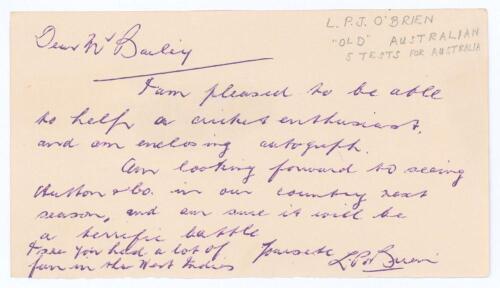 L.P.J. O'BRIEN
"OLD" AUSTRALIAN
5 TESTS FOR AUSTRALIA
Dear Mr Bailey
I am pleased to be able
to help a cricket enthusiast,
and am enclosing autograph.
Am looking forward to seeing
Hutton & Co. in our country next
season, and am sure it will be
a terrific battle
I see you had a lot of
fun in the West Indies
L P O'Brien